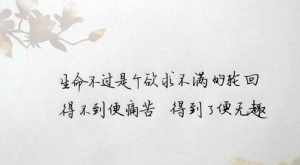 生命不过是个欲求不满的轮回
得不到便痛苦 得到了便无趣